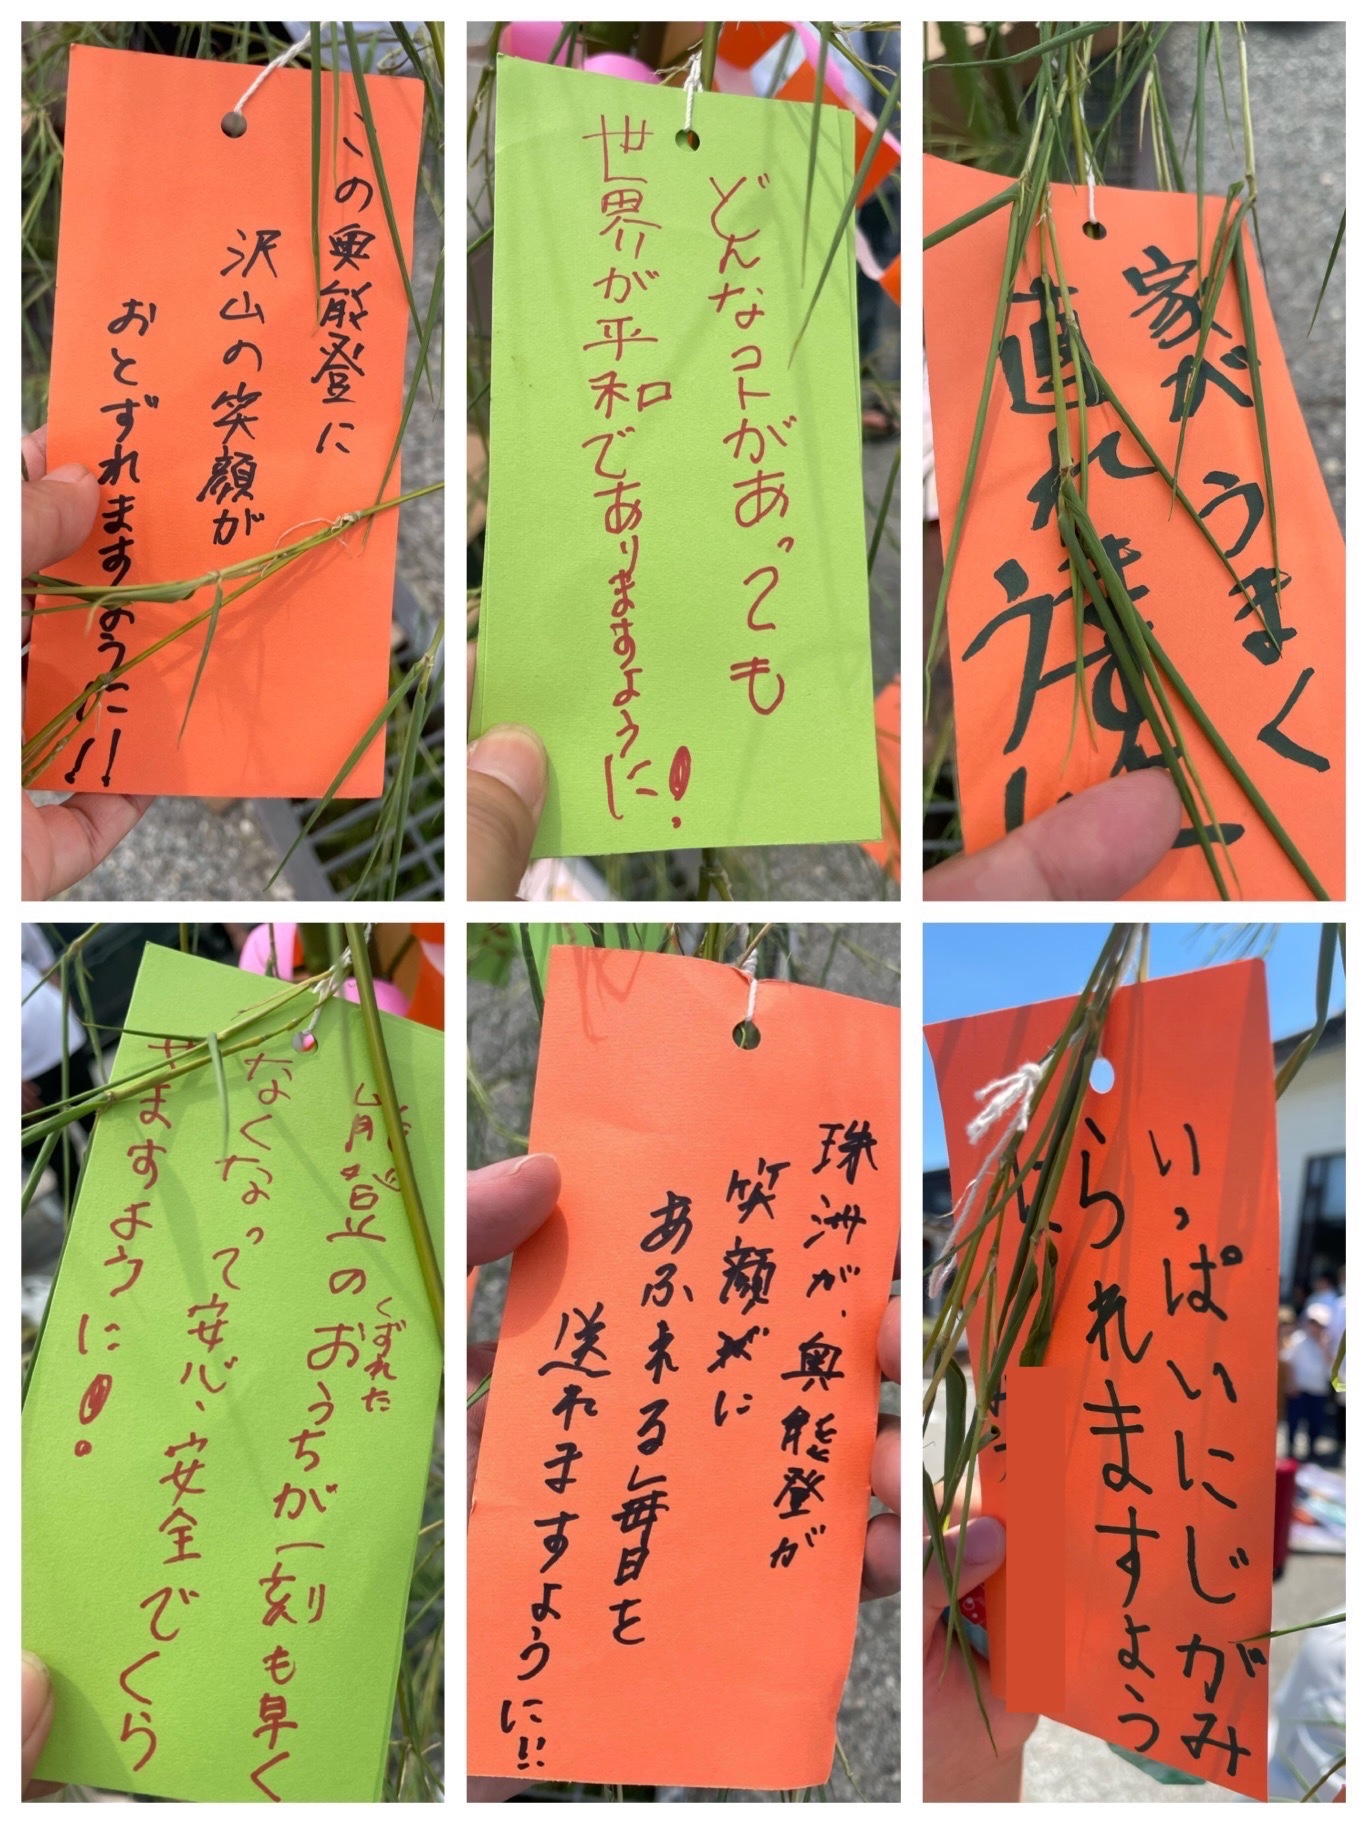 この奥能登に
沢山の笑顔が
おとずれますように!!
どんなコトがあっても
世界が平和でありますように!
家がうまく
直れますように
能登のくずれたおうちが一刻も早く
なくなって安心、安全でくら
せますように!
珠洲が、奥能登が
笑顔に
あふれる毎日を
送れますように!!
いっぱいにじがみ
られますよう
に